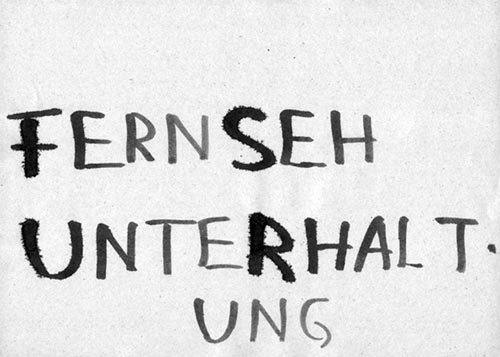 FERNSEH
UNTERHALT.
UNG